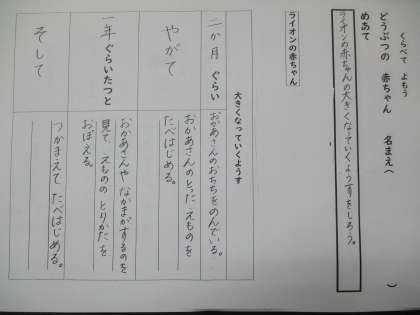 くらべて よもう
どうぶつの 赤ちゃん 名まえ( )
めあて
ライオンの赤ちゃんの大きくなっていくようすをしろう。
ライオンの赤ちゃん
大きくなっていくようす
二か月 ぐらい
おかあさんのおちちをのんでいる。
やがて
おかあさんのとった えものを
たべはじめる。
一年 ぐらいたつと
おかあさんや なかまがするのを
見て、えものの とりかたを
おぼえる。
そして
つかまえて たべはじめる。